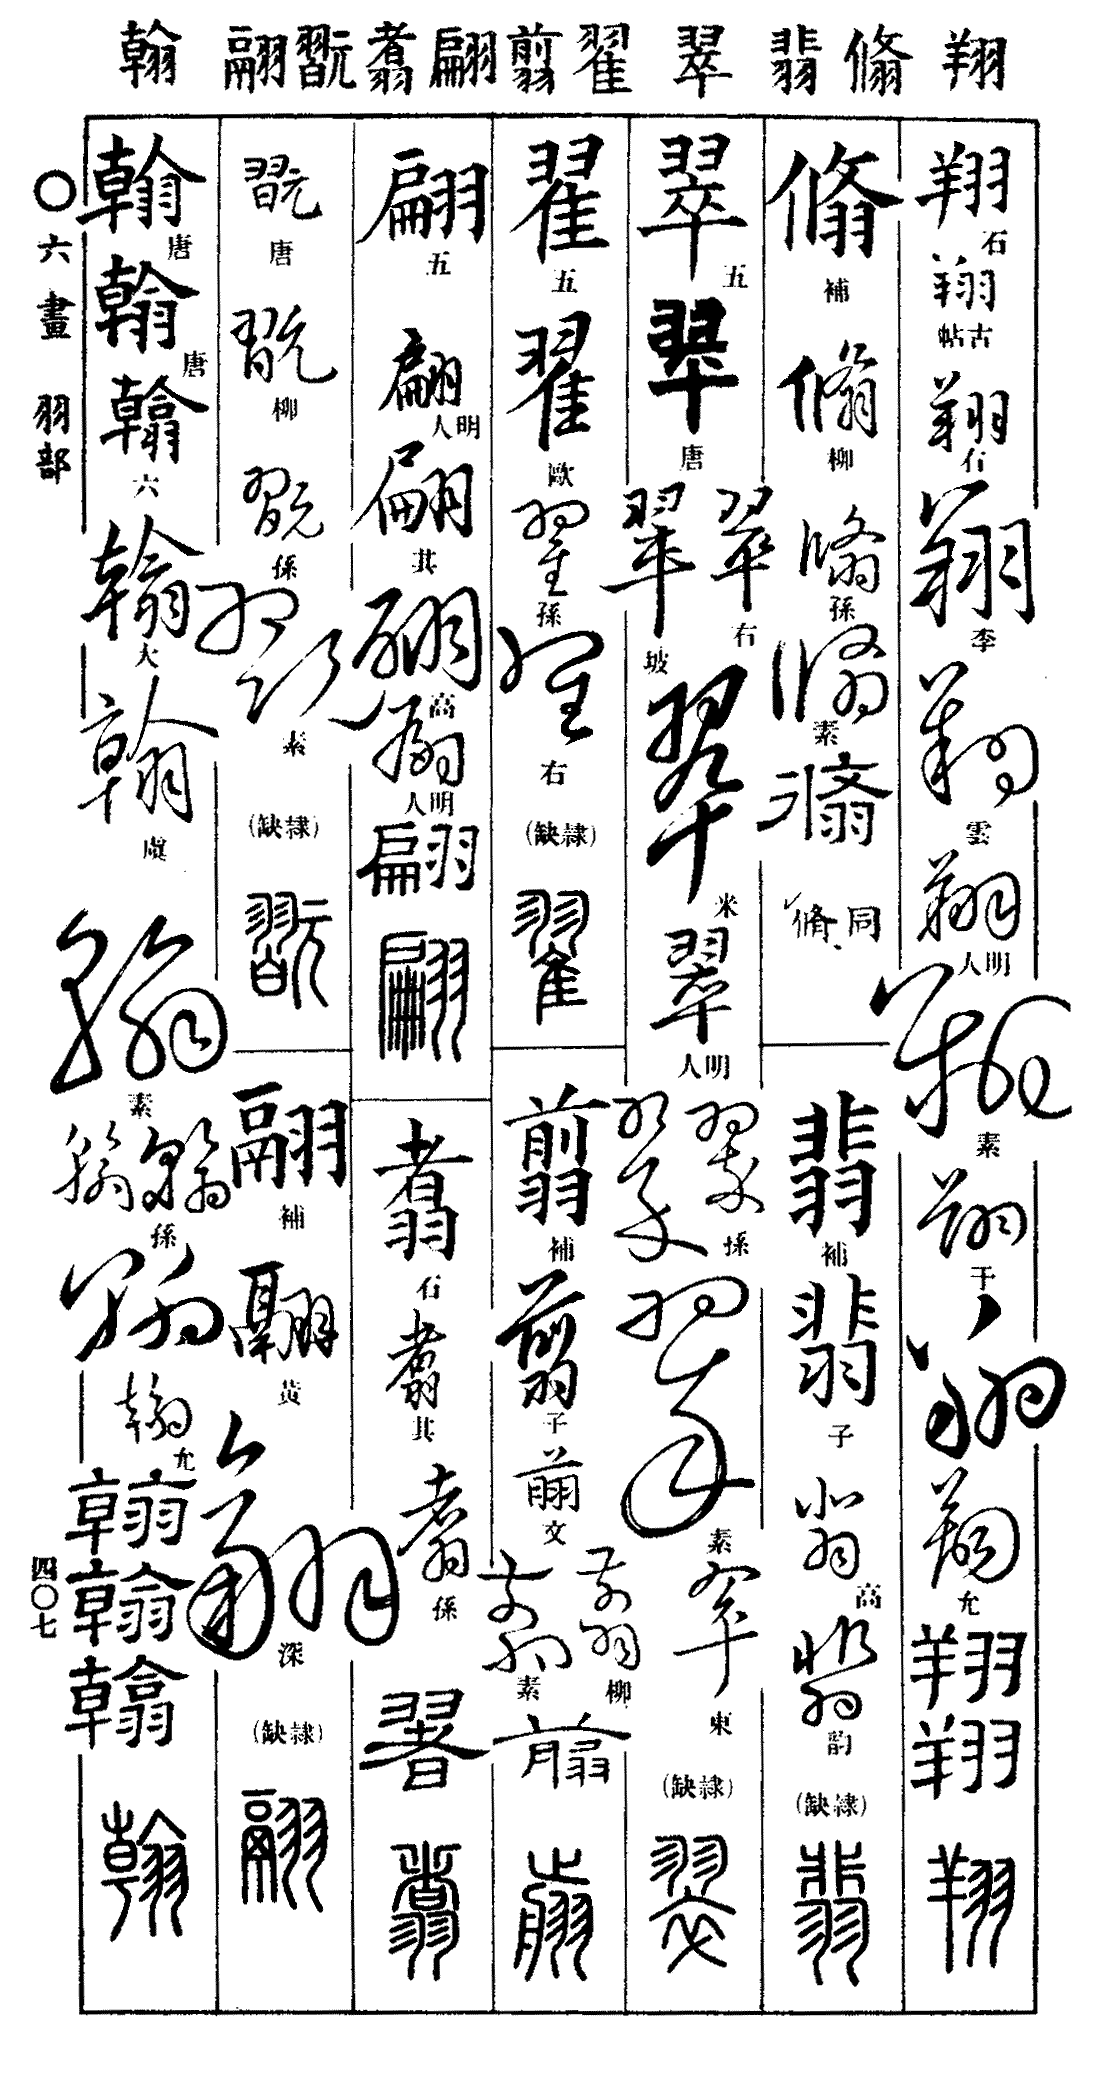 翔 翛 翡 翠 翟 翦 翩 翥 翫 翮 翰
翔 石 翔 古帖 翔 右 翔 李 翔 雲 翔 明人 翔 素 翔 干 翔 翔 允 翔 翔 翔
翛 補 翛 柳 翛 孫 翛 素 翛 同翛
翡 補 翡 子 翡 高 翡 韵 (隷缺) 翡
翠 五 翠 唐 翠 右 翠 坡 翠 米 翠 明人 翠 翠 孫 翠 素 翠 東 (隷缺) 翠
翟 五 翟 歐 翟 孫 翟 右 (隷缺) 翟
翦 補 翦 子 翦 文 翦 柳 翦 素 翦 翦
翩 五 翩 明人 翩 其 翩 高 翩 明人 翩 翩
翥 石 翥 其 翥 孫 翥 翥
翫 唐 翫 柳 翫 孫 翫 素 (隷缺) 翫
翮 補 翮 黄 翮 深 (隷缺) 翮
翰 唐 翰 唐 翰 六 翰 大 翰 虞 翰 素 翰 翰 孫 翰 翰 允 翰 翰 翰 翰
〇六畫 羽部
四〇七